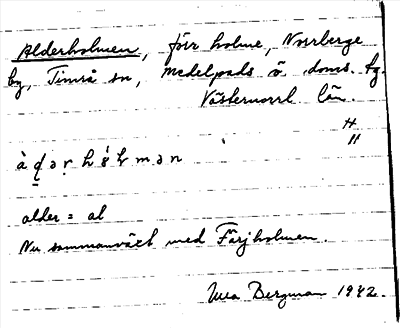 Alderholmen, förr holme, Norrberge
by, Timrå sn, Medelpads ö. doms. tg.
Västernorrl län.
alder = al
Nu sammanväxt med Färjholmen.
Ulla Bergman 1942.